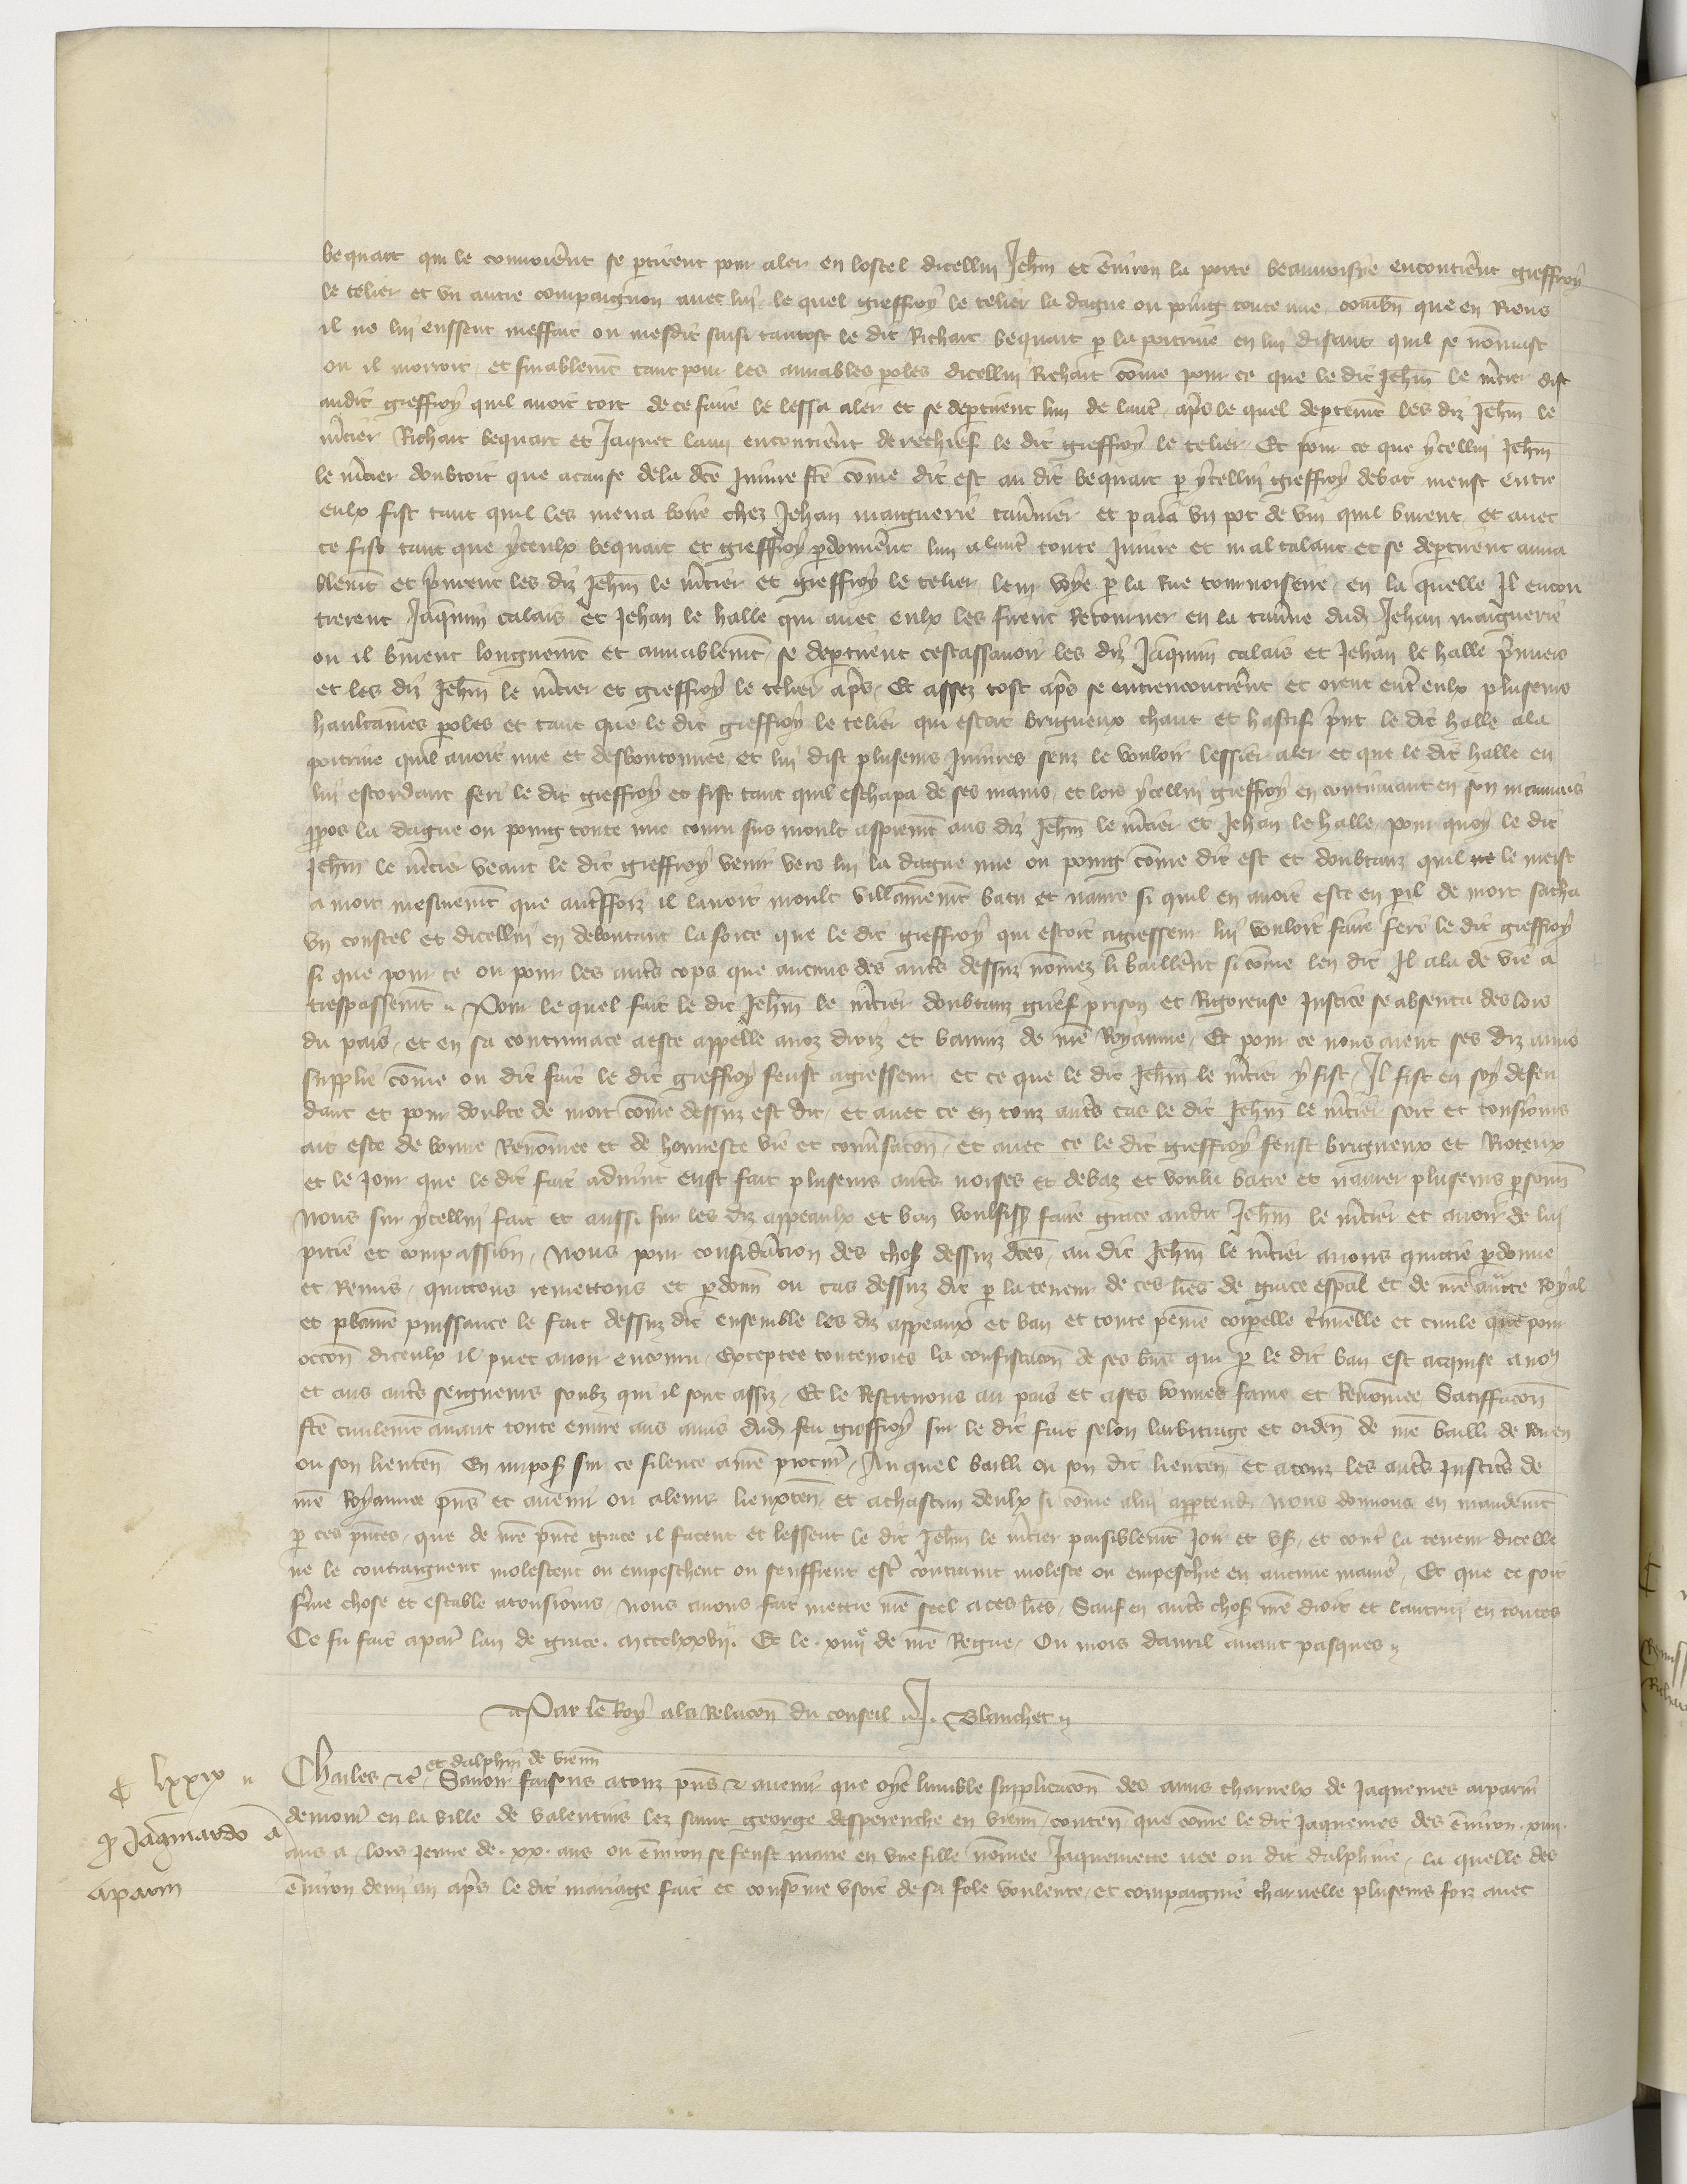 bequart qui le convoièrent se ptirent pour aler en lostel dicellui Jehn̄ et ēviron la porte beauvoisine encontrèrent gieffroy
le telier et vn autre compaignon avec lui le quel gieffroy le telier la dague ou poing toute nue combn̄ que en Riens
il ne lui eussent meffait ou mesdit saisi tantost le dit Richart bequart p la poitrine en lui disant quil se nōmast
ou il morroit et finablemt tant pour les amiables poles dicellui Richart cōme pour ce que le dit Jehn̄ le mcier dist
audit gieffroy quil avoit tort de ce faire le lessa aler et se deptirent lun de laut apres le quel deptemt les diz Jehn̄ le
mcier Richart bequart et Jaquet encontrerent derechief le dit gieffroy le telier Et pour ce que ycellui Jehn̄
le mcier doubtoit que a cause de la dce Iniure fte cōme dit est au dit bequart p ycellui gieffroy debat meust entre
eulx fist tant quil les mena boire chez Jehan maiguerie tavnier et paia vn pot de vin quil burent et avec
ce fist tant que yceulx bequart et gieffroy pdonnerent lun a laut toute Iniure et mal talant et se deptirent amia
blemt et prirent les diz Jehn̄ le mcier et gieffroy le telier leur voye p la Rue en la quelle Il encon
trerent Jaquin calais et Jehan le halle qui avec eulx les firent Retourner en la tavne dud Jehan maiguerie
ou il burent longuemt et amiablemt se deptirent cestassavoir les diz Jaquin calais et Jehan le halle pmiers
et les diz Jehn̄ le mcier et gieffroy le telier apres Et assez tost apres se entrencontrerent et orent entr eulx pluseurs
haultaines poles et tant que le dit gieffroy le telier qui estoit brigueux chaut et hastif print le dit halle a la
poitrine quil avoit nue et desboutonnee et lui dist pluseurs Iniures senz le vouloir lessier aler et que le dit halle en
lui escordant feri le dit gieffroy et fist tant quil eschapa de ses mains et lors ycellui gieffroy en continuant en son mauvais
ppos la dague ou poing toute nue couru sus moult aspremt aus diz Jehn̄ le mcier et Jehan le halle pour quoy le dit
Jehn̄ le mcier veant le dit gieffroy venir vers lui la dague nue ou poing cōme dit est et doubtanz quil ne le meist
a mort mesmemt que autrefforz il lavoit moult villainnemt batu et navre si quil en avoit este en pil de mort sacha
vn coustel et dicellui en deboutant la force que le dit gieffroy qui estoit agresseur lui vouloit faire feri le dit gieffroy
si que pour ce ou pour les autrs cops que aucuns des autrs dessuz nōmez li baillerent si cōme len dit Il ala de vie a
trespassemt Pour le quel fait le dit Jehn̄ le mcier doubtanz grief prison et Rigoreuse Justice se absenta des lors
du pais et en sa contumace a este appelle a noz droiz et baniz de nre Royaume Et pour ce nous aient ses diz amis
supplie cōme ou dit fait le dit gieffroy feust agresseur et ce que le dit Jehn̄ le mcier y fist Il fist en soy defen
dant et pour doubte de mort cōme dessuz est dit et avec ce en touz autrs cas le dit Jehn̄ le mcier soit et tousiours
ait este de bonne Renōmee et de honneste vie et convsacon et avec ce le dit gieffroy feust brigueux et Rioteux
et le Jour que le dit fait advint eust fait pluseurs autrs noises et debaz et voulu batre et navrer pluseurs psonn
Nous sur ycellui fait et aussi sur les diz appeaulx et ban voulsiss faire grace audit Jehn̄ le mcier et avoir de lui
pitie et compassion Nous pour considacion des chos dessuz dces au dit Jehn̄ le mcier avons quittie pdonne
et Remis quittons remettons et pdonn ou cas dessuz dit p la teneur de ces lres de grace espal et de nre aucte Royal
et plaine puissance le fait dessuz dit ensemble les diz appeaux et ban et toute peine corpelle cminelle et civile que pour
occon diceulx il puet avoir encouru Exceptee toutevoies la confiscacon de ses bns qui p le dit ban est acquise a no9
et aus autrs seigneurs soubz qui il sont assiz Et le Restituons au pais et a ses bonnes fame et Renōmee Satiffacon
fte civilemt avant toute euvre aus amis dud feu gieffroy sur le dit fait selon larbitrage et orden de nre bailli de Rouen
ou son lieuten En impos sur ce silence a nre procur Au quel bailli ou son dit lieuten et a touz les autrs Justicrs de
nre Royaume pns et avenir ou a leur lieuxten et a chascun deulx si cōme a lui apptend Nous donnons en mandemt
p ces pntes que de nre pnte grace il facent et lessent le dit Jehn̄ le mcier paisiblemt Joir et vs et contr la teneur dicelle
ne le contraignent molestent ou empeschent ou seuffrent estr contraint moleste ou empeschie en aucune manier Et que ce soit
fme chose et estable a tousiours Nous avons fait mettre nre scel a ces lres Sauf en autrs chos nre droit et lautrui en toutes
Ce fu fait a par lan de grace mccclxxvii Et le xiiiie de nre Regne Ou mois davril avant pasques
Par le Roy a la Relacon du conseil J. Blanchet
lxxix
et dalphin de vienn
Charles &c Savoir faisons a touz pns & avenir que oye lumble supplicacon des amis charnelx de Jaquemes aparin
demour en la ville de valentins lez saint george desperenche en vienn conten que cōme le dit Jaquemes des ēviron xiiii
p Jaqmardo
aparin
ans a lors Jeune de xx ans ou ēviron se feust marie en vne fille nōmee Jaquemette nee ou dit dalphine la quelle des
ēviron demi an apres le dit mariage fait et consōme vsoit de sa fole voulente et compaignie charnelle pluseurs forz avec